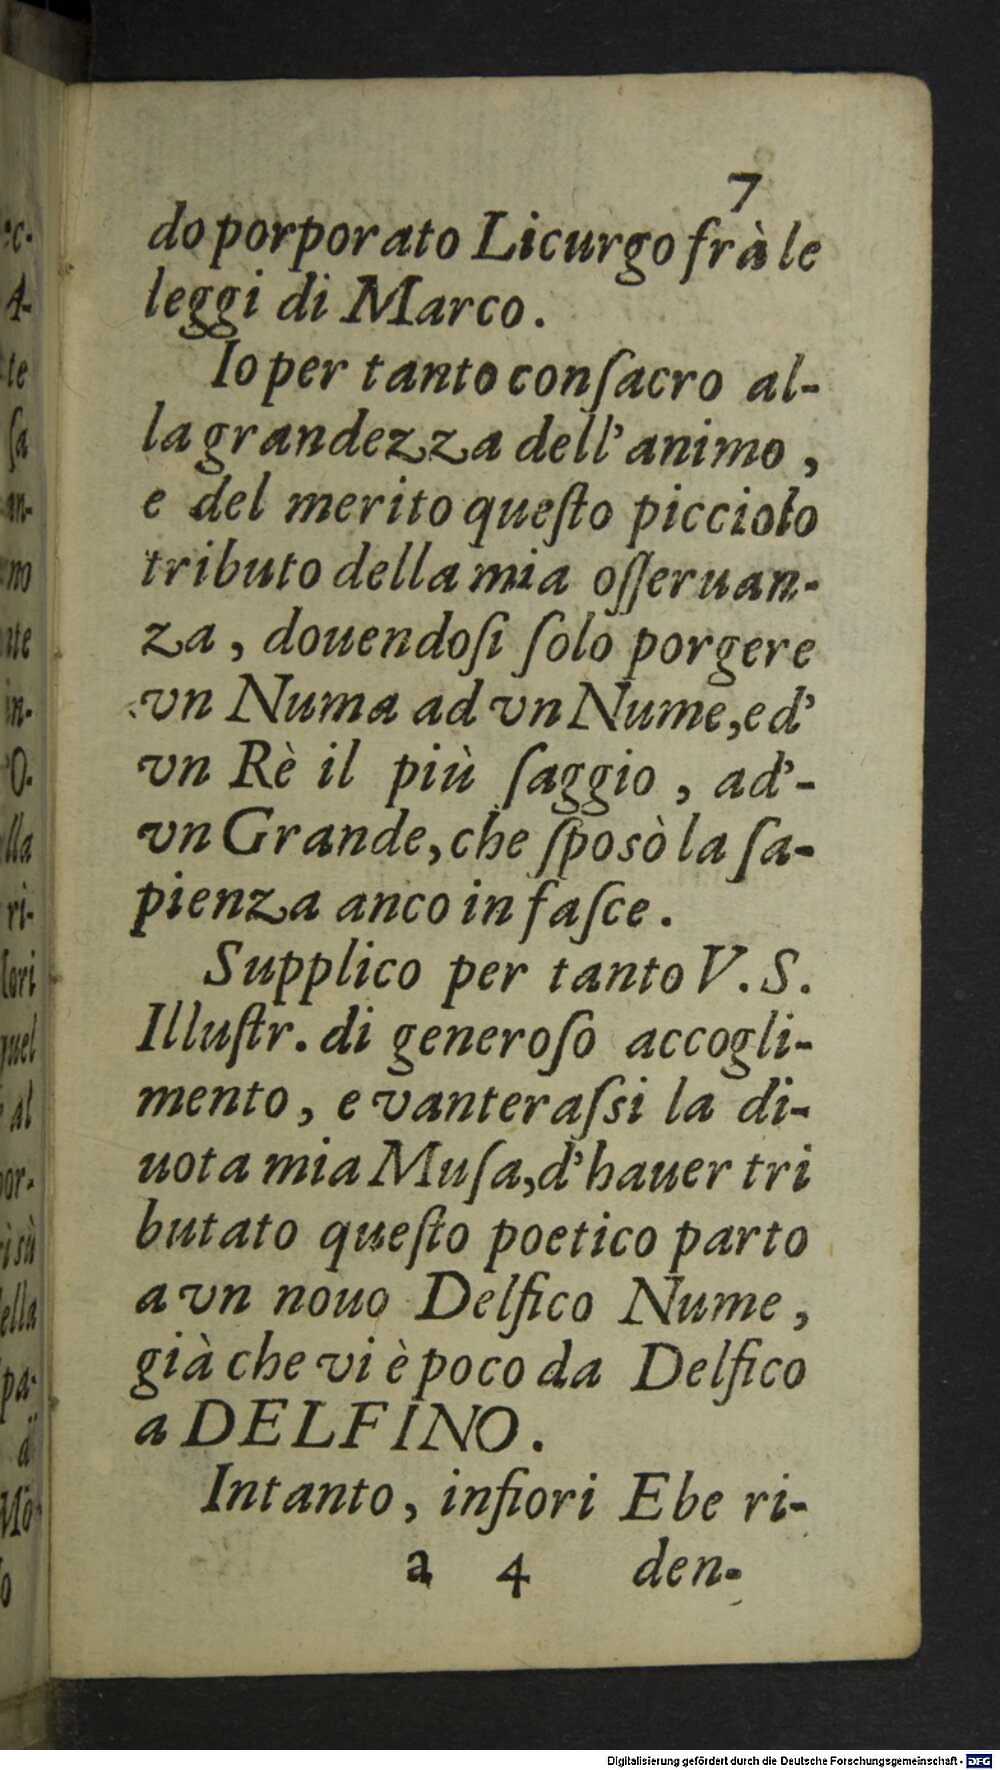 7
do porporato Licurgo frà le
leggi di Marco.
Io per tanto conſacro al-
la grandezza dell'animo,
e del merito queſto picciolo
tributo della mia oſſeruan-
za, douendoſi ſolo porgere
vn Numa ad vn Nume, ed'
vn Rè il più ſaggio, ad'-
vn Grande, che ſposò la ſa-
pienza anco in faſce.
Supplico per tanto V. S.
Illuſtr. di generoſo accogli-
mento, e vanteraſsi la di-
uota mia Muſa, d'hauer tri
butato queſto poetico parto
a vn nouo Delfico Nume,
già che vi è poco da Delfico
a DELFINO.
Intanto, infiori Ebe ri-
a 4 den-
Digitalisierung gefördert durch die Deutsche Forschungsgemeinschaft - DFG